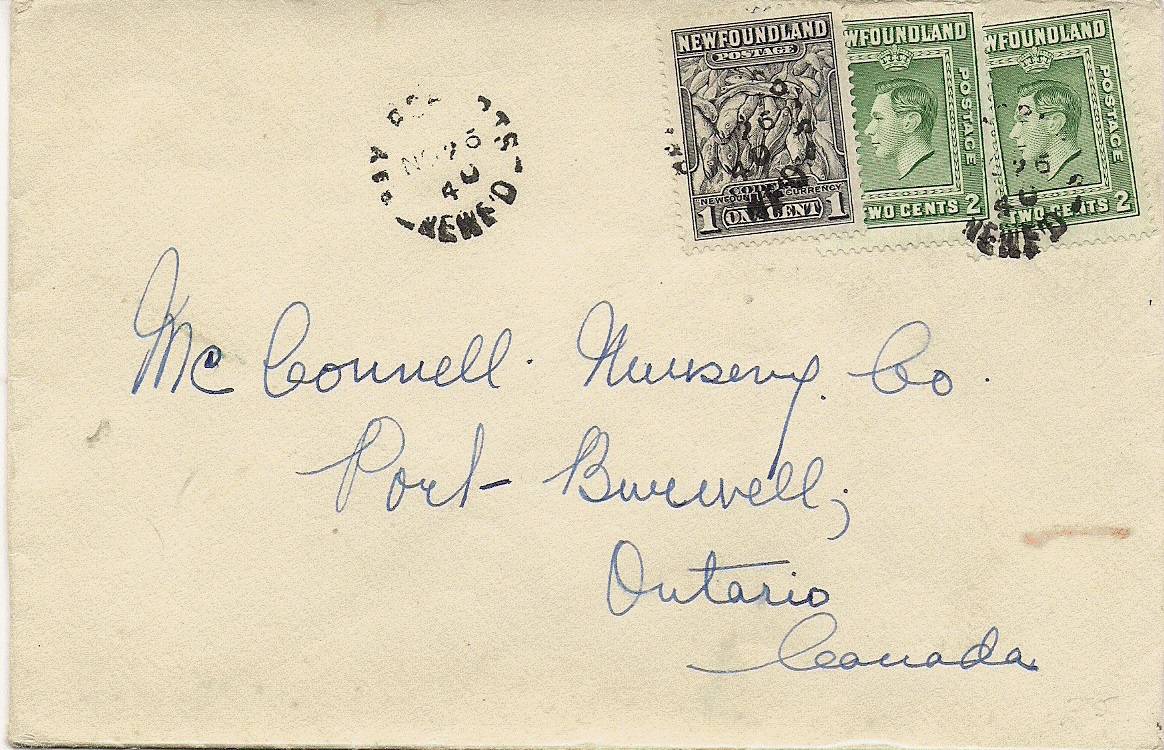 NEWFOUNDLAND
POSTAGE
COD
NEWFOUN CURRENCY
1 ONE CENT 1
WFOUNDLAND
POSTAGE
WO CENTS 2
WFOUNDLAND
POSTAGE
TWO CENTS 2
NO 26
40
NEWF'D
Mc Connell. Nursery. Co.
Port Burwell,
Ontario
Canada